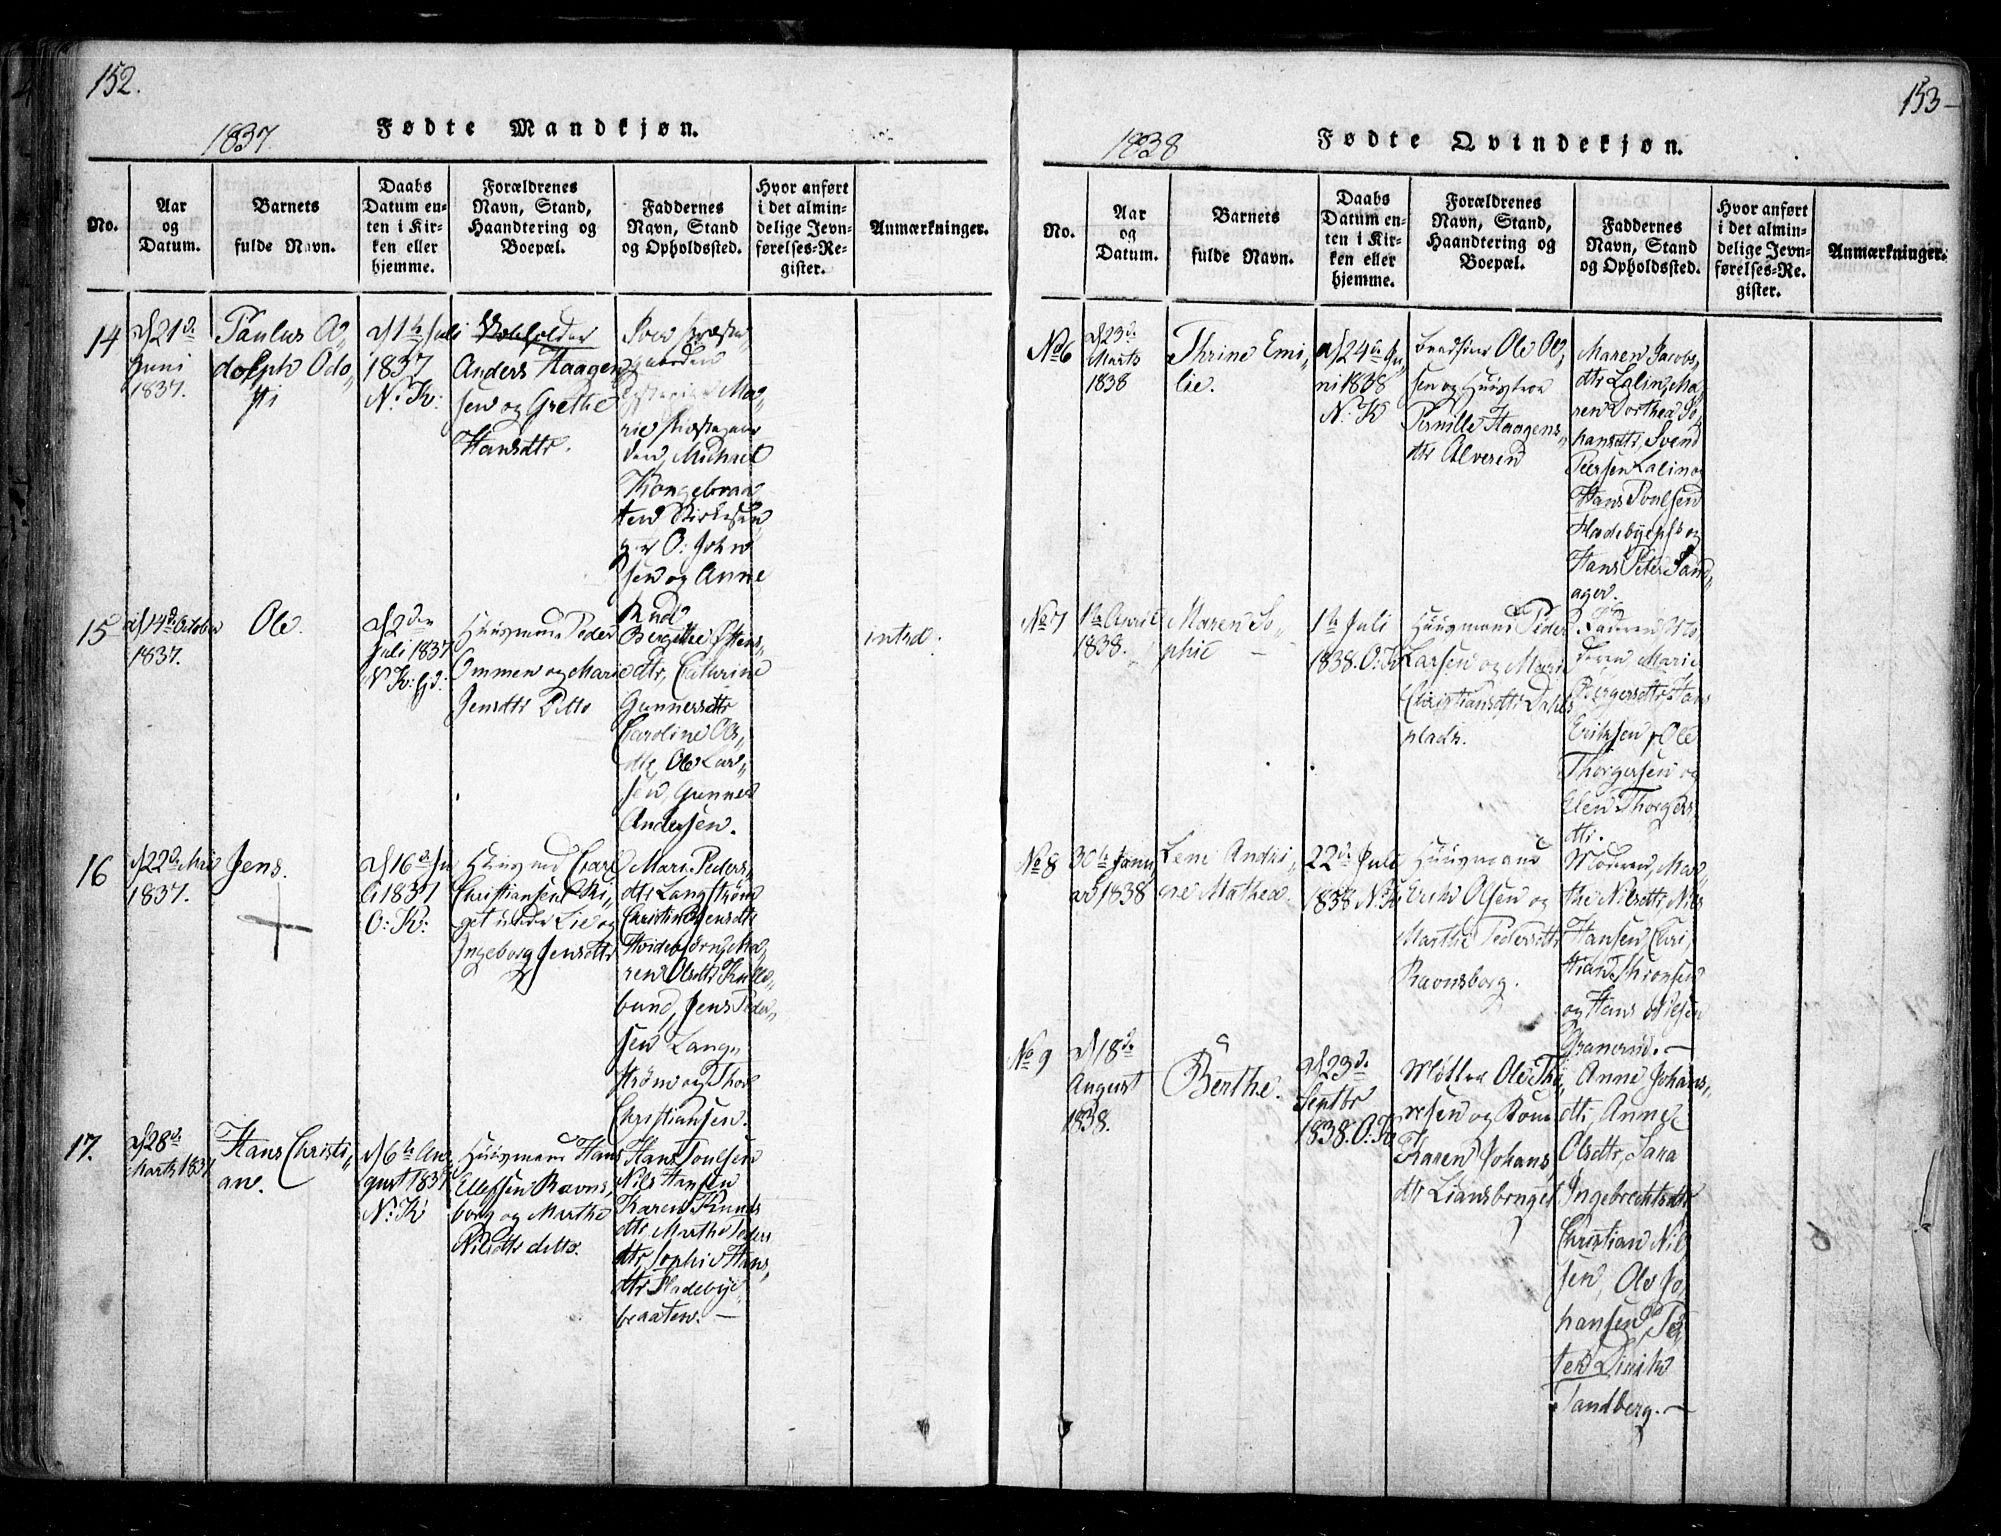 152.
1837
Fødte Mandkjøn.
No.
Aar
og
Datum.
Barnets
fulde Navn.
Daabs
Datum en-
ten i Kir-
ken eller
hjemme.
Forældrenes
Navn, Stand,
Haandtering og
Boepæl.
Faddernes
Navn, Stand
og Opholdssted.
Hvor anført
i det almin-
delige Jevn-
førelses-Re-
gister.
Anmærkninger.
14
d 21de
Juni
1837.
Paulus A-
dolph
d 1te Juli
1837
N: K:
Anders Haagen-
sen og Grethe
Hansdtr.
Ma-
rie
den, Michael
Kongebraa-
ten
O: John-
sen og Anne
Rud
15
d 14de October
1837.
Ole.
d 2den
Juli 1837
N K:
Huusmand Peder
Ommen og Marie
Jensdtr Ditto
Bergithe
dtr, Cathrine
Gunnersdtr
Caroline Ols-
dtr, Ole Lar-
sen, Gunner
Andersen.
introd.
16
d 22de Mai
1837.
Jens.
d 16de Ju-
li 1837
O: K:
Huusmd Carl
Christiansen
under Lie og
Ingeborg Jensdtr
Mari Peders-
dtr Langstrøm
Christine Jensdtr
ren Olsdtr Kulle-
bund, Jens Peder-
sen Lang-
strøm og Thor
Christiansen.
17.
d 28de
Marts 1837
Hans Christi-
an.
d 6te Au-
gust 1837
N: K
Huusmand Hans
Ellefsen Ravns-
borg og Marthe
Nilsdtr ditto.
Hans Poulsen
Nils Hansen
Karen Knuds-
dtr, Marthe Peders-
dtr, Sophie Hans-
dtr Hladebye-
braaten. —
153
1838
Fødte Qvindekjøn.
No.
Aar
og
Datum.
Barnets
fulde Navn.
Daabs
Datum en-
ten i Kir-
ken eller
hjemme.
Forældrenes
Navn, Stand,
Haandtering og
Boepæl.
Faddernes
Navn, Stand
og Opholdssted.
Hvor anført
i det almin-
delige Jevn-
førelses-Re-
gister.
Anmærkninger.
No 6
d 23de
Marts
1838
Thrine Emi-
lie.
d 24de Ju-
ni 1838
N: K
Ole Ol-
sen og Huustroe
Pernille Haagens-
dtr Alveren
Maren Jacobs-
dtr Lalin, Ma-
ren Dorthea Jo-
hansdtr, Svend
Peersen Lalin og
Hans Poulsen
og
Hans Peter Sand-
ager.
No 7
1te April
1838.
Maren So-
phie —
1te Juli
1838. O: K
Huusmand Peder
Larsen og Mari
Christiansdtr Dahls-
plads.
Mo-
deren Marie
Børgersdtr, Hans
Eriksen, Ole
Thorgersen og
Elen Thorgers-
dtr.
No 8
30te Janu-
ar 1838
Leni Andri-
ne Mathea.
22de Juli
1838 N: K
Huusmand
Erik Olsen og
Marthe Pedersdtr
Ravnsborg.
Moderen, Mar-
the Nilsdtr, Nils
Hansen, Chri-
stian
og Hans Nilsen
Granerud. —
No 9
d 18de
August
1838.
Berthe.
d 23de
Septbr
1838. O: K
Møller Ole Tho-
resen og Kone
Karen Johans-
dtr Liansbruget
Anne Johans-
dtr, Anne
Olsdtr, Sara
Ingebrechtsdtr
Christian Nil-
sen, Ole Jo-
hansen, Pe-
ter
Sandberg. —